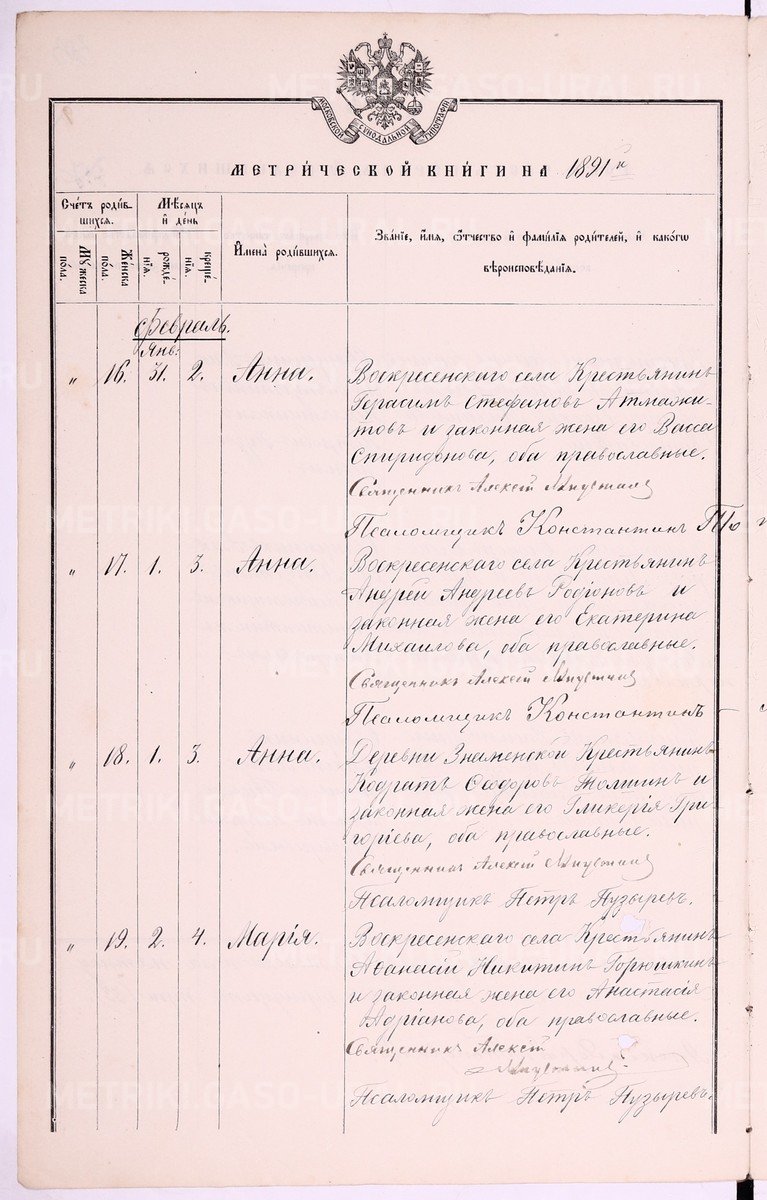 МОСКОВСКОЙ СѴНОДАЛЬНОЙ ТИПОГРАФІИ
МЕТРИ́ЧЕСКОЙ КНИ́ГИ НА 1891 й
Сче́тъ роди́вшихся.
Мѣ́сяцъ и҆ де́нь
И҆мена̀ роди́вшихся.
Зва́нїе, и҆́мя, ѻ҆́тчество и҆ фами́лїя роди́телей, и҆ како́гѡ вѣроисповѣ́данїя.
Мꙋ́жеска по́ла.
Же́нска по́ла.
рожде́нїя.
креще́нїя.
Февраль.
Янв:
" 16. 31. 2. Анна. Воскресенскаго села Крестьянинъ
Герасимъ Стефановъ Атмажи-
товъ и законная жена его Васса
Спиридонова, оба православные.
Священникъ Алексѣй
Псаломщикъ Константинъ
" 17. 1. 3. Анна. Воскресенскаго села Крестьянинъ
Андрей Андреевъ Родіоновъ и
законная жена его Екатерина
Михаилова, оба православные.
Священникъ Алексѣй
Псаломщикъ Константинъ
" 18. 1. 3. Анна. Деревни Знаменской Крестьянинъ
Кодратъ Ѳеодоровъ Толшинъ и
законная жена его Гликерія Гри-
горіева, оба православные.
Священникъ Алексѣй
Псаломщикъ Петръ Пузыревъ.
" 19. 2. 4. Марія. Воскресенскаго села Крестьянинъ
Аѳанасій Никитинъ Горюшкинъ
и законная жена его Анастасія
Адріанова, оба православные.
Священникъ Алексѣй
Псаломщикъ Петръ Пузыревъ.